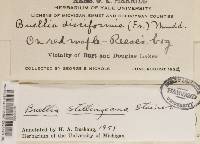 HERBARIUM OF YALE UNIVERSITY
LICHENS OF MICHIGAN, EMMET AND CHEBOYGAN COUNTIES
Buellia disciformis (Fr.) Mudd.
On red maple - Reese's bog
Vicinity of Burt and Douglas Lakes
COLLECTED BY GEORGE E. NICHOLS
Buellia stillingiana Steiner
Annotated by H. A. Imshaug, 1951
Herbarium of the University of Michigan